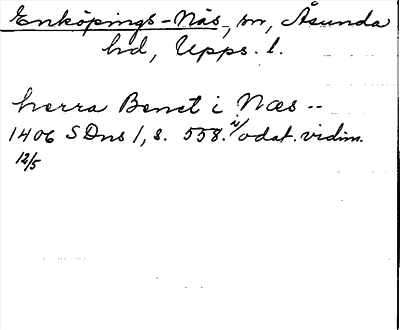 Enköpings-Näs, sn, Åsunda
hd, Upps. l.
herra Benct i Næs --
1406 SDns 1, s. 558. i/odat. vidim.
12/5